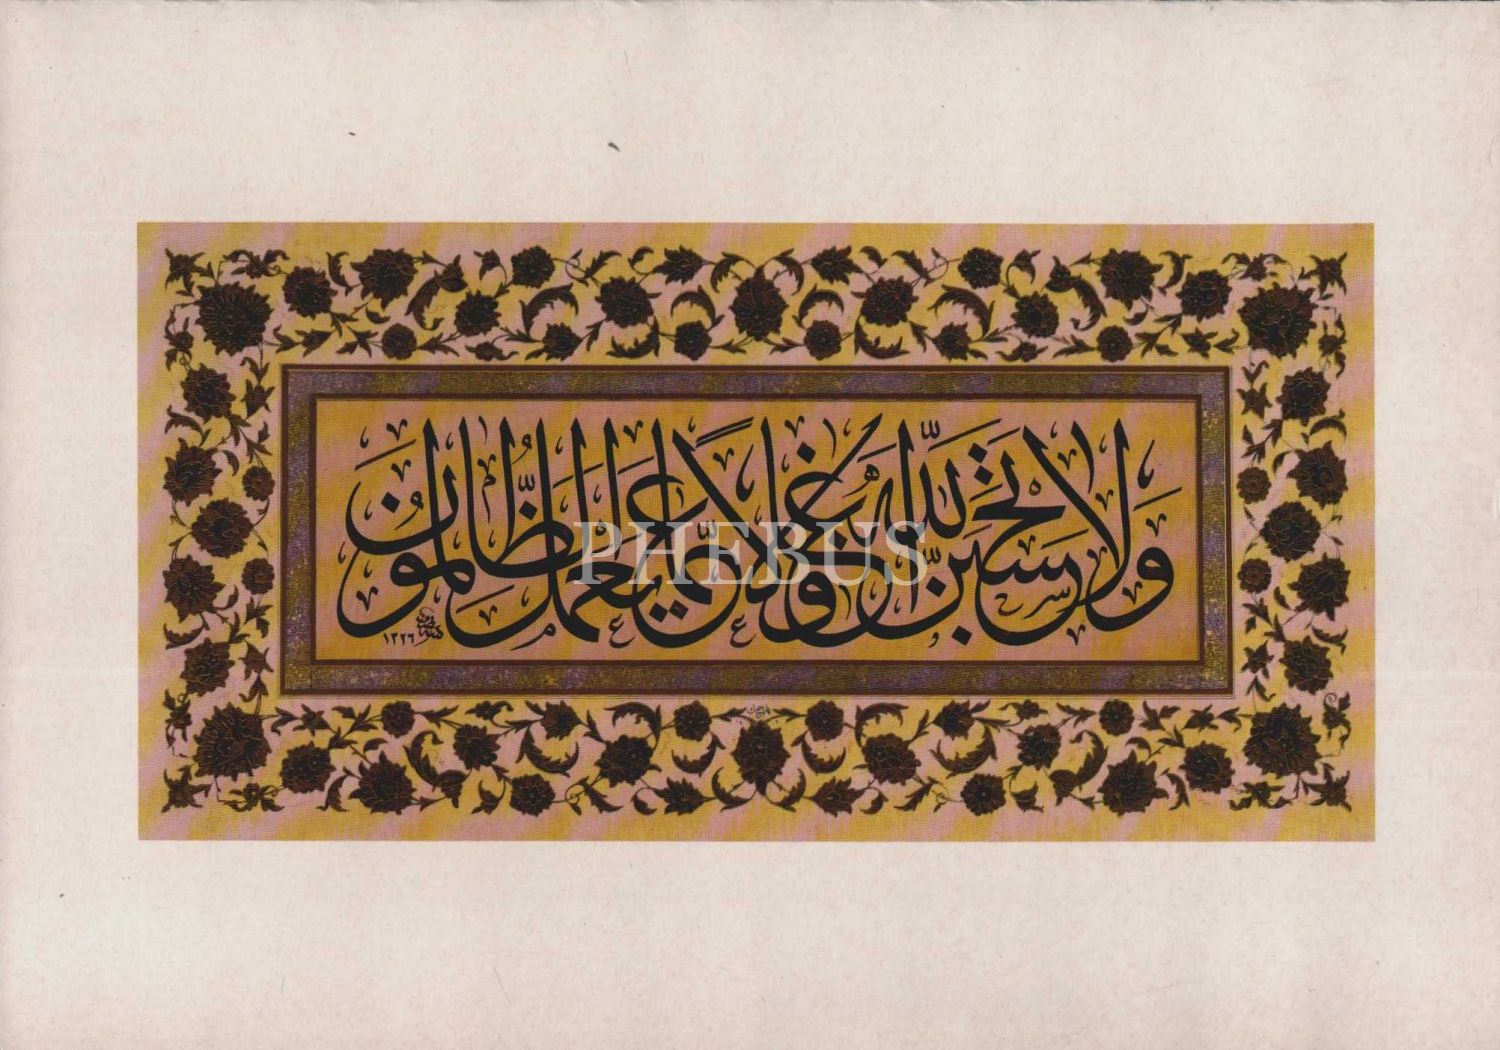 ولا تحسبن الله غافلا عما يعمل الظالمون
١٣٢٦
PHEBUS